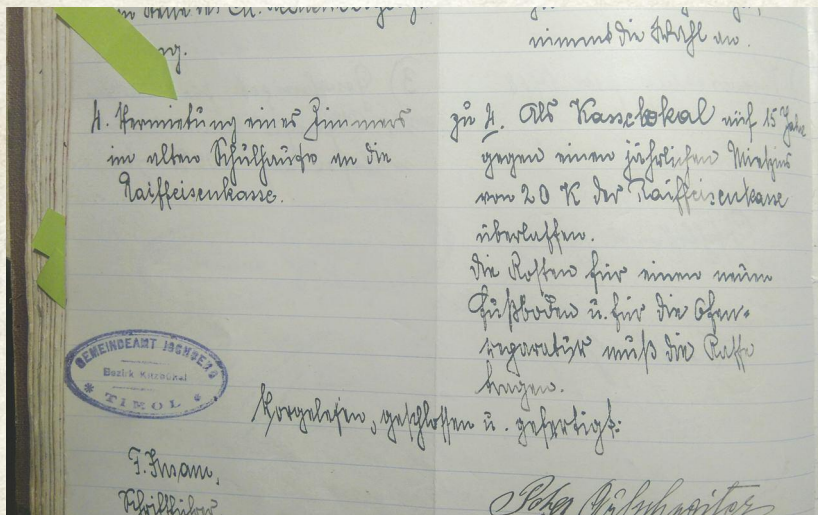 nimmt die Wahl an.
4. Vermietung eines Zimmers
im alten Schulhause an die
Raiffeisenkasse.
zu 4. Als Kasselokal auf 15 Jahre
gegen einen jährlichen Mietzins
von 20 K der Raiffeisenkasse
überlassen.
Die Kosten für einen neuen
Fußboden u. für die Ofen-
reparatur muß die Kasse
tragen.
GEMEINDEAMT JOCHBERG
Bezirk Kitzbühel
TIROL
Vorgelesen, geschlossen u. gefertigt:
Schriftführer